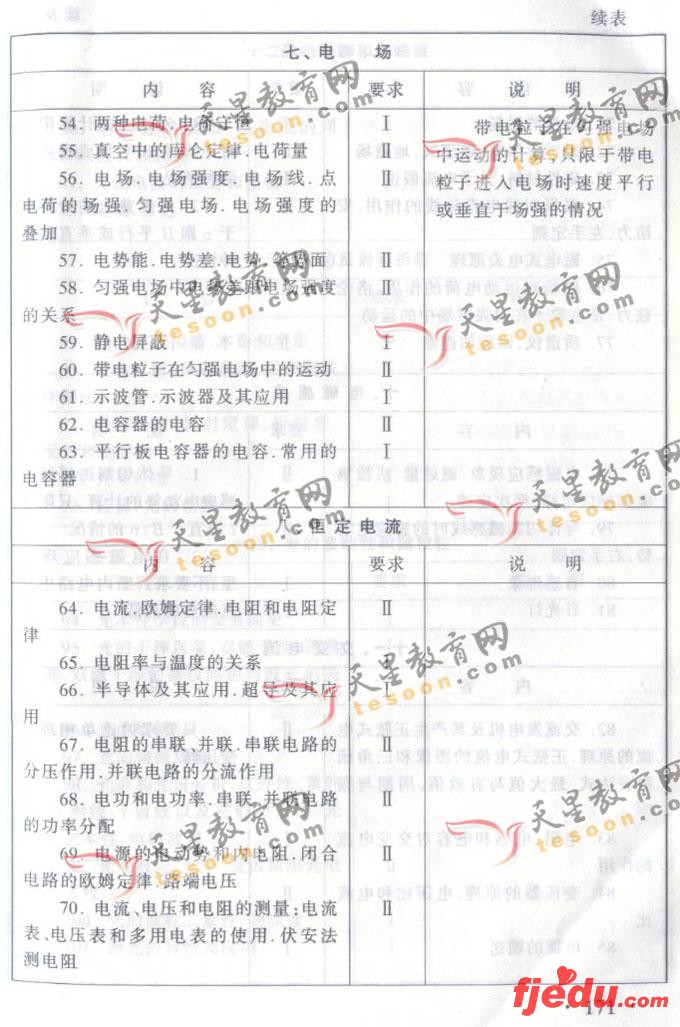 续表
七、电 场
内 容 要求 说 明
54. 两种电荷.电荷守恒 Ⅰ 带电粒子在匀强电场
55. 真空中的库仑定律.电荷量 Ⅱ 中运动的计算,只限于带电
56. 电场.电场强度.电场线.点 Ⅱ 粒子进入电场时速度平行
电荷的场强.匀强电场.电场强度的 或垂直于场强的情况
叠加
57. 电势能.电势差.电势.等势面 Ⅱ
58. 匀强电场中电势差跟电场强度 Ⅱ
的关系
59. 静电屏蔽 Ⅰ
60. 带电粒子在匀强电场中的运动 Ⅱ
61. 示波管.示波器及其应用 Ⅰ
62. 电容器的电容 Ⅱ
63. 平行板电容器的电容.常用的 Ⅰ
电容器
八、恒定电流
内 容 要求 说 明
64. 电流.欧姆定律.电阻和电阻定 Ⅱ
律
65. 电阻率与温度的关系 Ⅰ
66. 半导体及其应用.超导及其应 Ⅰ
用
67. 电阻的串联、并联.串联电路的 Ⅱ
分压作用.并联电路的分流作用
68. 电功和电功率.串联、并联电路 Ⅱ
的功率分配
69. 电源的电动势和内电阻.闭合 Ⅱ
电路的欧姆定律.路端电压
70. 电流、电压和电阻的测量;电流 Ⅱ
表、电压表和多用电表的使用.伏安法
测电阻
· 171 ·
天星教育网
tesoon.com
天星教育网
tesoon.com
天星教育网
tesoon.com
天星教育网
tesoon.com
天星教育网
tesoon.com
天星教育网
tesoon.com
天星教育网
tesoon.com
天星教育网
tesoon.com
天星教育网
tesoon.com
天星教育网
tesoon.com
fjedu.com